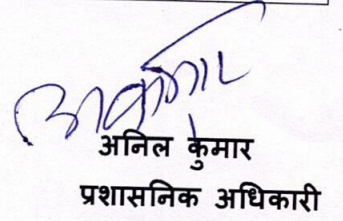 अनिल कुमार
प्रशासनिक अधिकारी